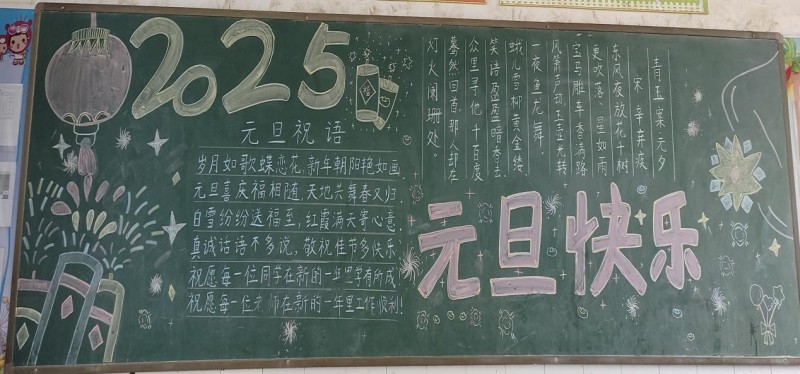 2025
元旦祝语
岁月如歌蝶恋花,新年朝阳艳如画,
元旦喜庆福相随,天地共舞春又归
白雪纷纷送福至,红霞满天寄心意
真诚话语不多说,敬祝佳节多快乐
祝愿每一位同学在新的一年里学有所成
祝愿每一位老师在新的一年里工作顺利!
青玉案 元夕
宋 辛弃疾
东风夜放花千树
更吹落、星如雨
宝马雕车香满路
凤箫声动,玉壶光转
一夜鱼龙舞.
蛾儿雪柳黄金缕
笑语盈盈暗香去.
众里寻他千百度
蓦然回首,那人却在
灯火阑珊处。
元旦快乐